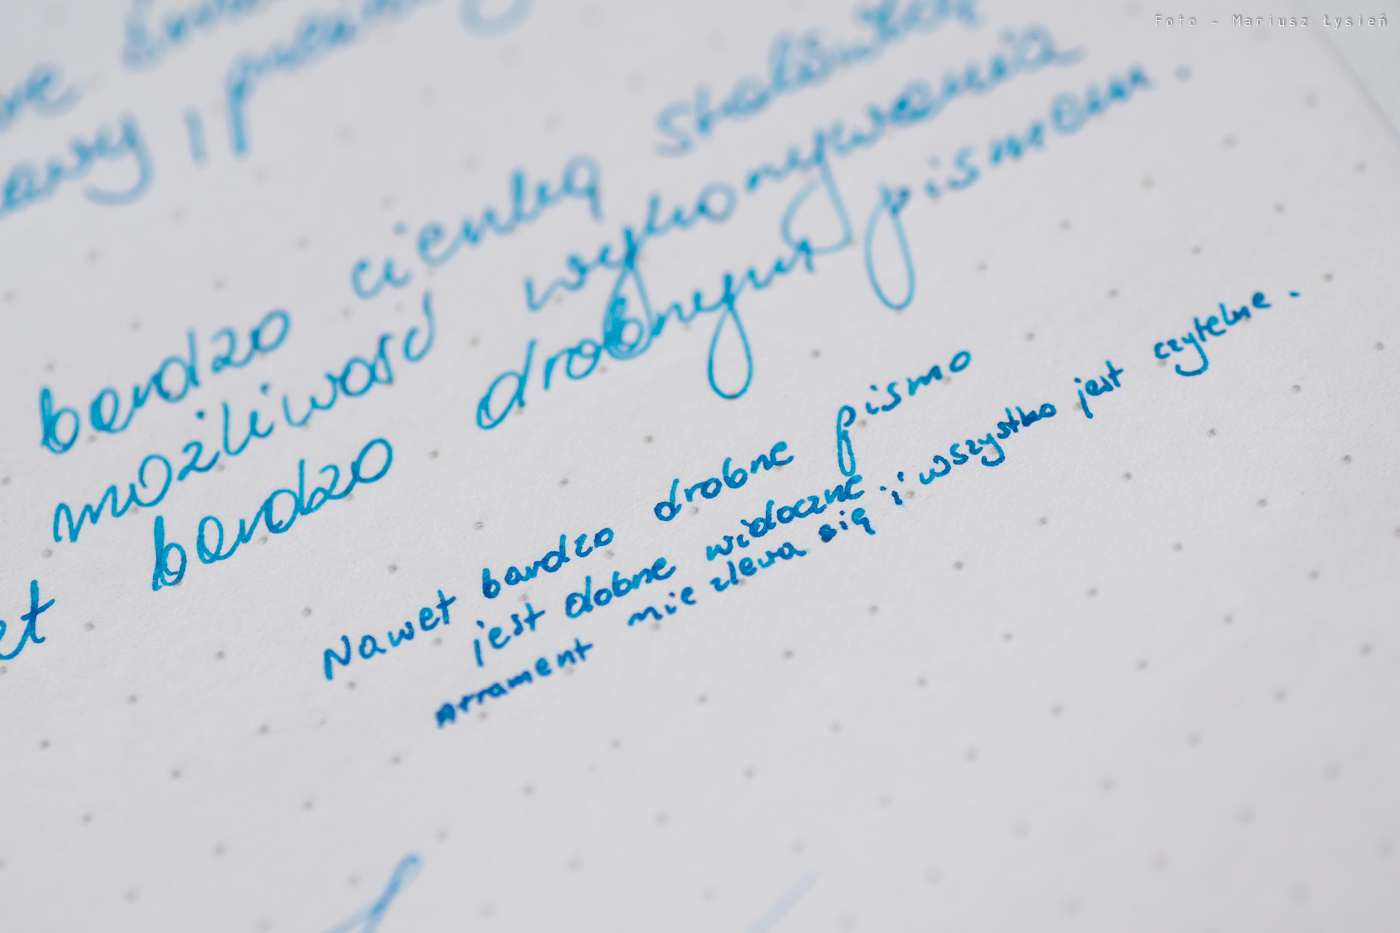 Foto - Mariusz Łysień
i
bardzo cienką stalówką
możliwość wykonywania
bardzo drobnym pismem.
Nawet bardzo drobne pismo
jest dobrze widoczne.
Atrament nie zlewa się i wszystko jest czytelne.